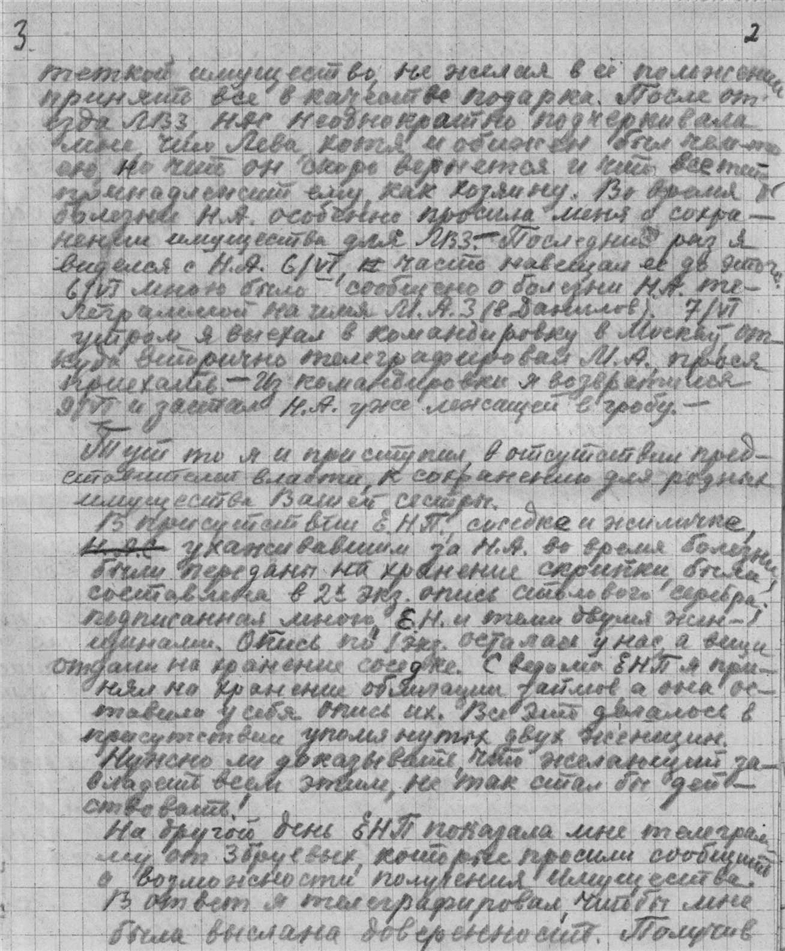 3.
2
теткой имущество, не желая в её положении
принять все в качестве подарка. После от-
езда ЛВЗ, НА неоднократно подчеркивала
мне что Лева хотя и обижен был чем-то
ею, но что он скоро вернется и что все это
принадлежит ему как хозяину. Во время
болезни Н.А. особенно просила меня о сохра-
нении имущества для ЛВЗ.— Последний раз я
виделся с Н.А. 6/VI, часто навещал её до этого.
6/VI мною было сообщено о болезни Н.А. те-
леграммой на имя М.А.З (в Данилов). 7/VI
утром я выехал в командировку в Москву от-
куда вторично телеграфировал М.А. прося
приехать — Из командировки я возвратился
9/VI и застал Н.А. уже лежащей в гробу.—
Тут то я и приступил, в отсутствии пред-
ставителей власти, к сохранению для родных
имущества Вашей сестры.
В присутствии Е.Н.П., соседке и жиличке,
ухаживавшим за Н.А. во время болезни
были переданы на хранение скрипки, была
составлена в 2х экз. опись столового серебра,
подписанная мною, Е.Н. и теми двумя жен-
щинами. Опись по 1 экз. осталась у нас, а вещи
отдали на хранение соседке. С ведома ЕНП я при-
нял на хранение облигации займов а она ос-
тавила у себя опись их. Все это делалось в
присутствии упомянутых двух женщин.
Нужно ли доказывать, что желающий за-
владеть всем этим, не так стал бы дей-
ствовать!
На другой день ЕНП показала мне телеграм-
му от Збруевых, которые просили сообщить
о возможности получения имущества.
В ответ я телеграфировал, чтобы мне
была выслана доверенность Получив